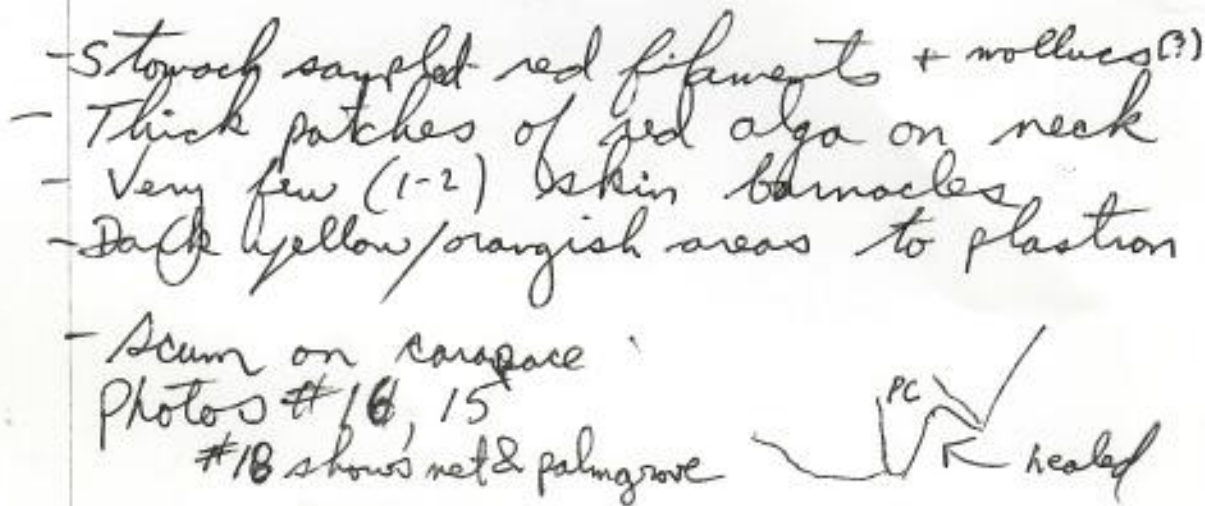 - Stomach sampled red filaments + molluscs (?)
- Thick patches of red alga on neck
- Very few (1-2) skin barnacles
- Dark yellow/orangish areas to plastron
- Scum on carapace
Photos #16, 15
#18 shows net & palmgrove
PC
healed